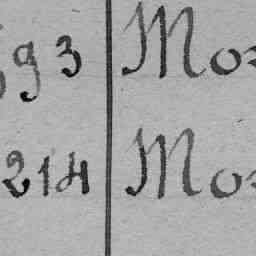 93 Mo
214 Mo